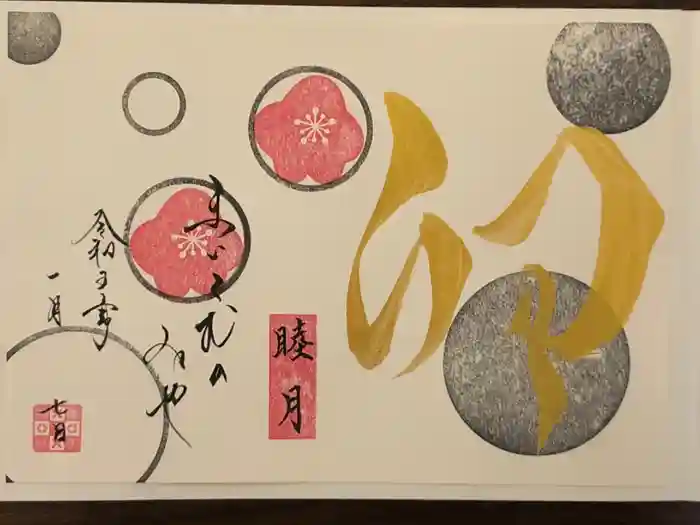 卯
睦月
まいくむの
みや
令和五年
一月
七日